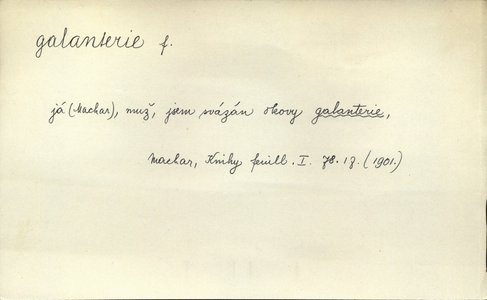 galanterie f.
já (Machar), muž, jsem svázán okovy galanterie,
Machar, Knihy feuill. I. 78. 17. (1901.)